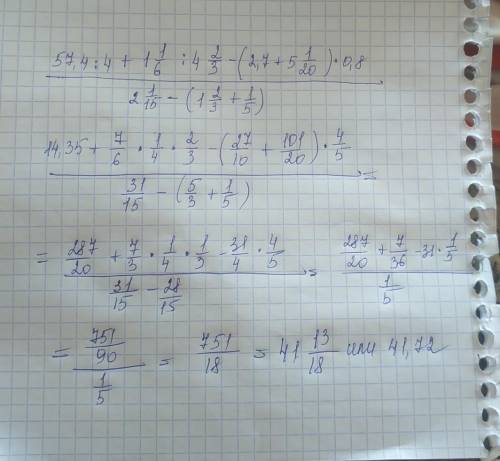 57,4 : 4 + 1 1/6 : 4 2/3 - (2,7 + 5 1/20) · 0,8
2 1/15 - (1 2/3 + 1/5)
14,35 + 7/6 · 1/4 · 2/3 - (27/10 + 101/20) · 4/5 =
31/15 - (5/3 + 1/5)
= 287/20 + 7/3 · 1/4 · 1/3 - 31/4 · 4/5 = 287/20 + 7/36 - 31 · 1/5
31/15 - 28/15 1/5
= 751/90 = 751/18 = 41 13/18 или 41,72
1/5